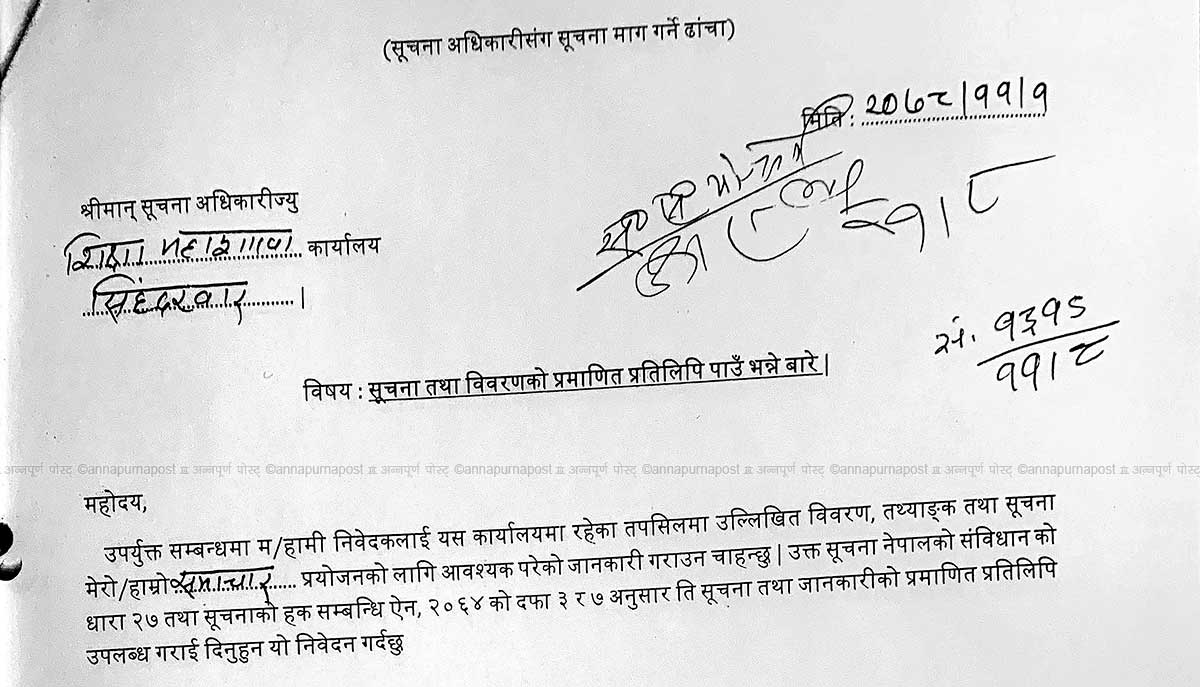 (सूचना अधिकारीसंग सूचना माग गर्ने ढांचा)
मिति : २०७८।११।१
श्रीमान् सूचना अधिकारीज्यु
शिक्षा महाशाखा कार्यालय
सिंहदरबार ।
सं. १३१५
११।८
विषय : सूचना तथा विवरणको प्रमाणित प्रतिलिपि पाउँ भन्ने बारे |
अन्नपूर्ण पोस्ट् ©annapurnapost अन्नपूर्ण पोस्ट् ©annapurnapost अन्नपूर्ण पोस्ट् ©annapurnapost अन्नपूर्ण पोस्ट् ©annapurnapost अन्नपूर्ण पोस्ट् ©annapurnapost अन्नपूर्ण पोस्ट् ©annapurnapost अन्नपूर्ण पोस्ट्
महोदय,
उपर्युक्त सम्बन्धमा म/हामी निवेदकलाई यस कार्यालयमा रहेका तपसिलमा उल्लिखित विवरण, तथ्याङ्क तथा सूचना
मेरो/हाम्रो समाचार प्रयोजनको लागि आवश्यक परेको जानकारी गराउन चाहन्छु | उक्त सूचना नेपालको संविधान को
धारा २७ तथा सूचनाको हक सम्बन्धि ऐन, २०६४ को दफा ३ र ७ अनुसार ति सूचना तथा जानकारीको प्रमाणित प्रतिलिपि
उपलब्ध गराई दिनुहुन यो निवेदन गर्दछु